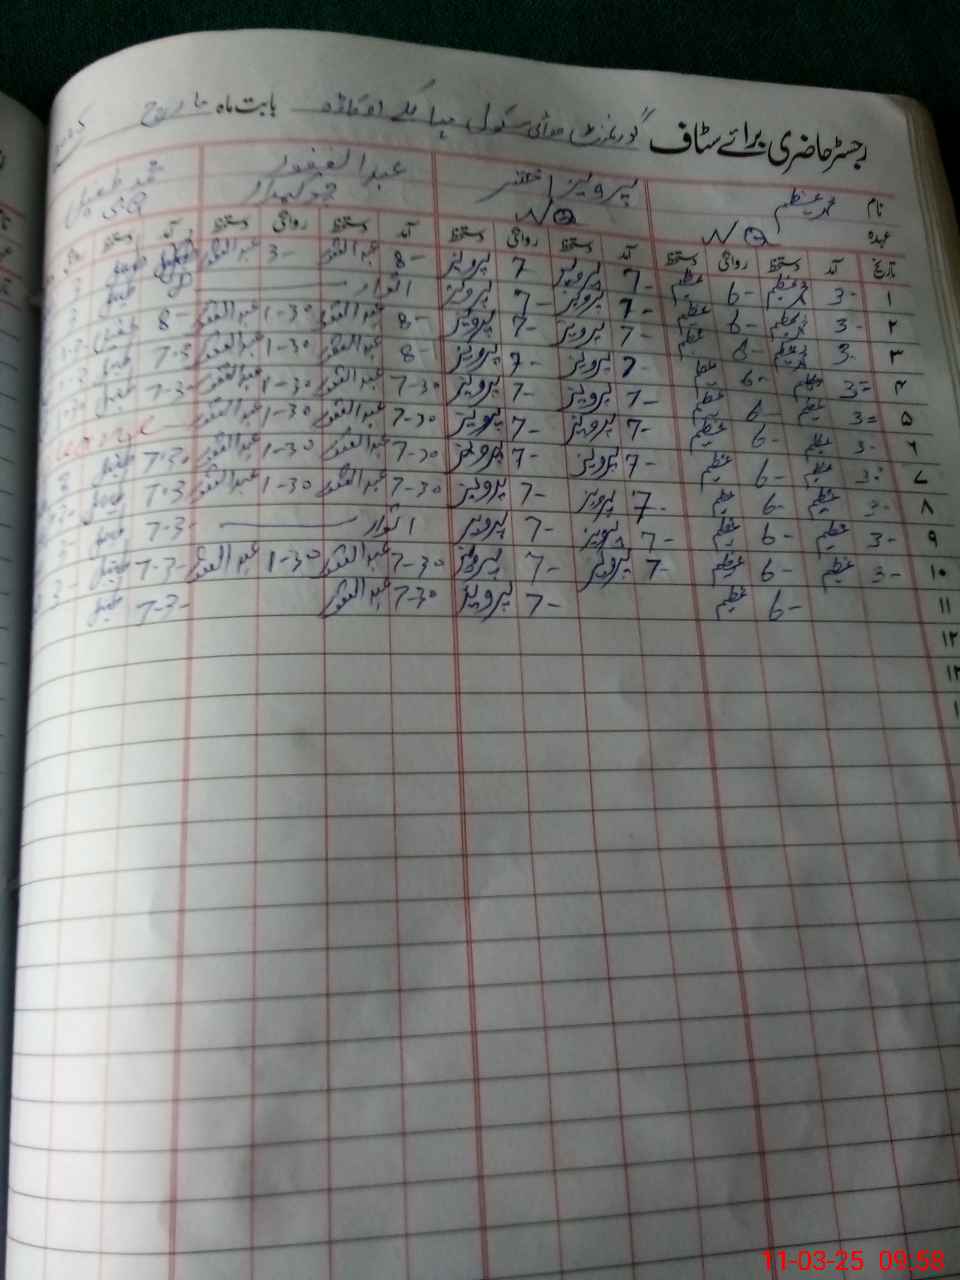 رجسٹر حاضری برائے سٹاف گورنمنٹ ہائی سکول بابت ماہ مارچ
نام محمد عظیم پرویز اختر عبدالغفور محمد طفیل
عہدہ NQ NQ چوکیدار
تاریخ آمد دستخط روانگی دستخط آمد دستخط روانگی دستخط آمد دستخط روانگی دستخط آمد دستخط
۱ 3- محمد عظیم 6- عظیم 7- پرویز 7- پرویز 8- عبدالغفور 3- عبدالغفور طفیل
۲ 3- محمد عظیم 6- عظیم 7- پرویز 7- پرویز اتوار طفیل
۳ 3- محمد عظیم 6- عظیم 7- پرویز 7- پرویز 8- عبدالغفور 1-30 عبدالغفور 8- طفیل
۴ 3- عظیم 6- عظیم 7- پرویز 7- پرویز 8- عبدالغفور 1-30 عبدالغفور 7-3- طفیل
۵ 3- عظیم 6- عظیم 7- پرویز 7- پرویز 7-30 عبدالغفور 1-30 عبدالغفور 7-3- طفیل
۶ 3- عظیم 6- عظیم 7- پرویز 7- پرویز 7-30 عبدالغفور 1-30 عبدالغفور
۷ 3- عظیم 6- عظیم 7- پرویز 7- پرویز 7-30 عبدالغفور 1-30 عبدالغفور 7-30 طفیل
۸ 3- عظیم 6- عظیم 7- پرویز 7- پرویز 7-30 عبدالغفور 1-30 عبدالغفور 7-3- طفیل
۹ 3- عظیم 6- عظیم 7- پرویز 7- پرویز اتوار 7-3- طفیل
۱۰ 3- عظیم 6- عظیم 7- پرویز 7- پرویز 7-30 عبدالغفور 1-30 عبدالغفور 7-3- طفیل
۱۱ 6- عظیم 7- پرویز 7-30 عبدالغفور 7-3- طفیل
۱۲
۱۳
۱
11-03-25 09:58